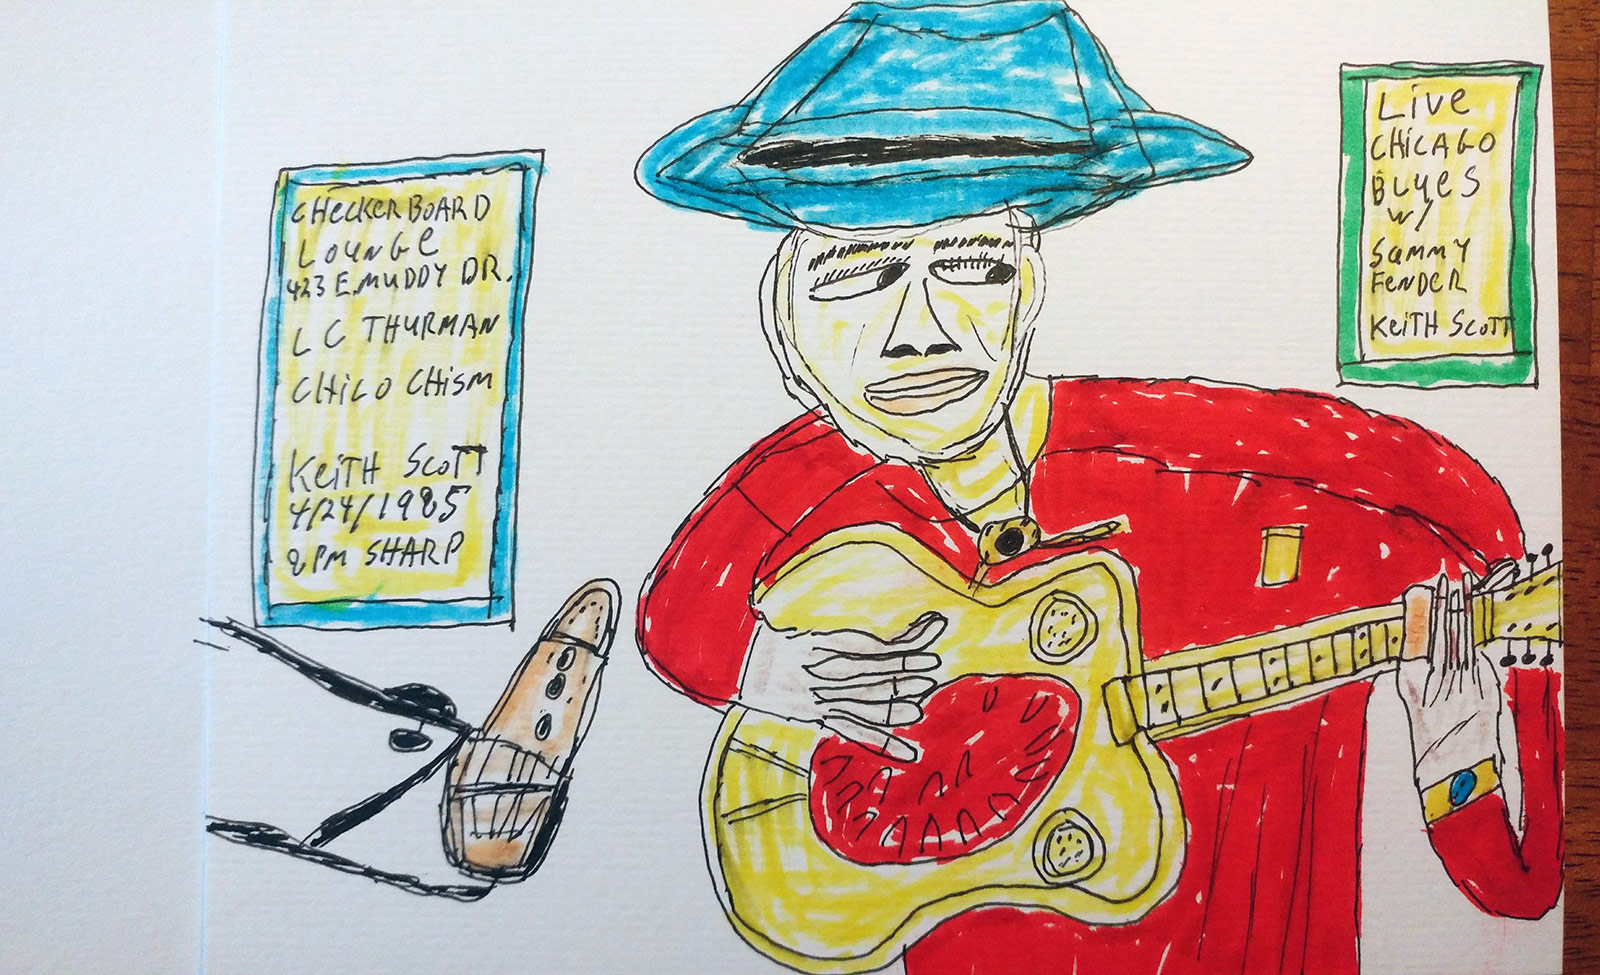 CHECKERBOARD
LOUNGE
423 E.MUDDY DR.
L C THURMAN
CHICO CHISM
KEITH SCOTT
4/24/1985
8PM SHARP
Live
CHICAGO
BLUES
W/
Sammy
FENDER
KEITH SCOTT